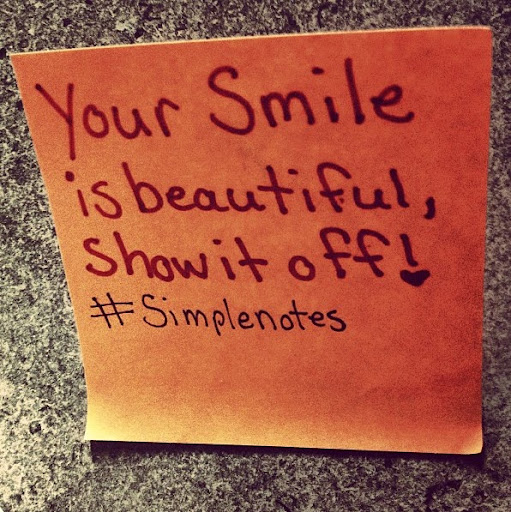 Your Smile
is beautiful,
Show it off!
#Simplenotes